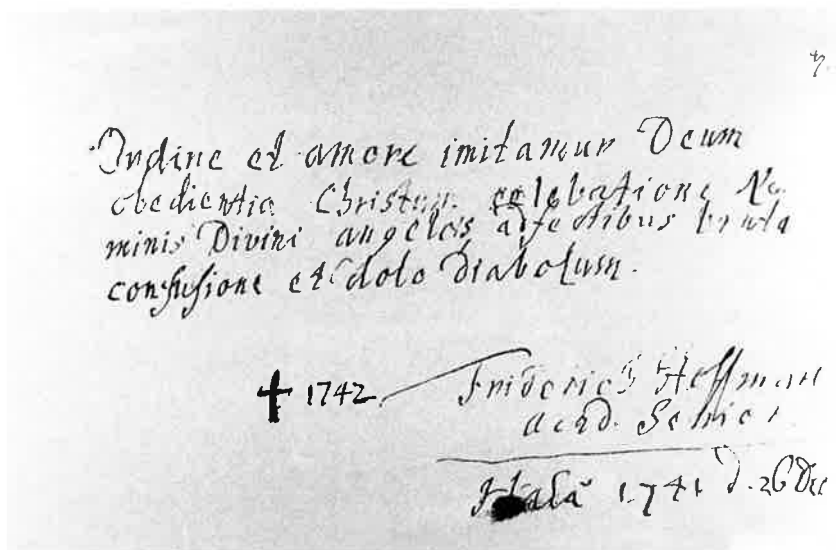 Ordine et amore imitamur Deum
obedientia Christum celebratione No
minis Divini angelos adfectibus bruta
confusione et dolo Diabolum.
✝ 1742
Frideric Hoffman
acad. Senior
Hala 1741 d. 26 Dec